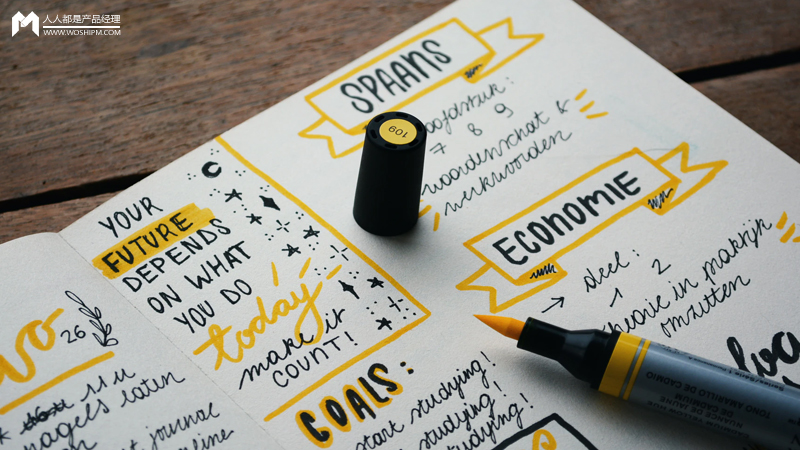 人人都是产品经理
WWW.WOSHIPM.COM
26
11 u
nagels laten
journal
YOUR
FUTURE
DEPENDS
ON WHAT
YOU DO
today
make it
COUNT!
GOALS:
start studying!
studying!
studying!
SPAANS
7 8 9
woordenschat &
werkwoorden
ECONOMIE
→ deel:
1 2
theorie in praktijk
omzetten
109
TONO AMARILLO DE CADMIO